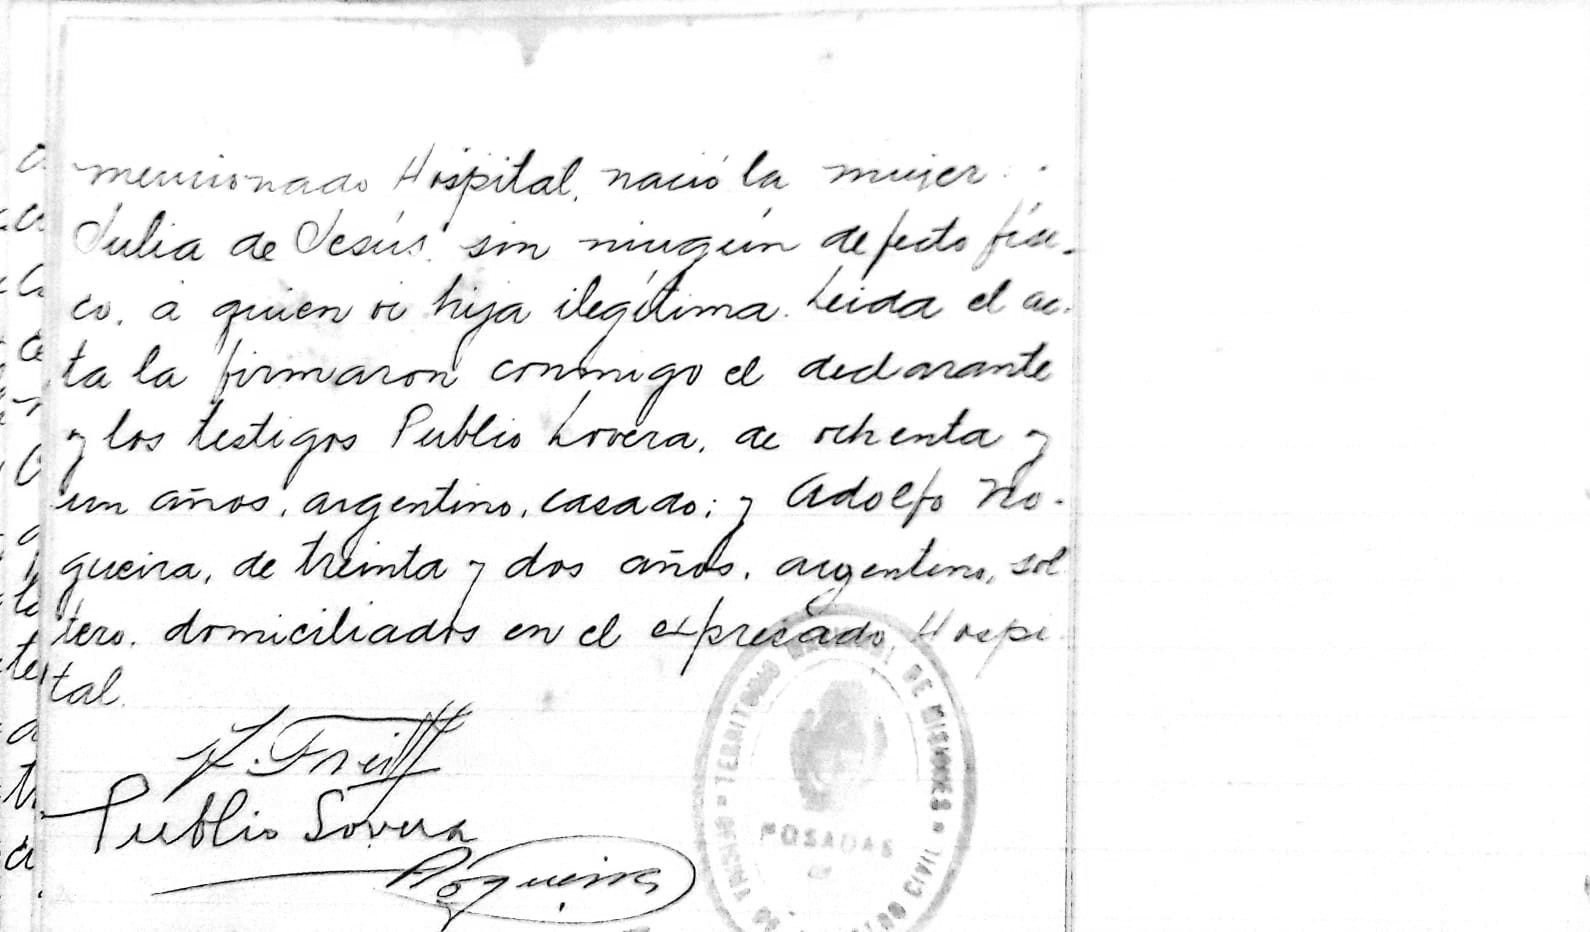 mencionado Hospital, nació la mujer
Julia de Jesús, sin ningún defecto físi-
co, á quien vi hija ilegítima. Leida el ac-
ta la firmaron conmigo el declarante
y los testigos Publio Lovera, de ochenta y
un años, argentino, casado; y Adolfo No-
gueira, de treinta y dos años, argentino, sol
tero, domiciliados en el expresado Hospi-
tal.
Publio Lovera
Nogueira
TERRITORIO NACIONAL DE MISIONES
POSADAS
CIVIL